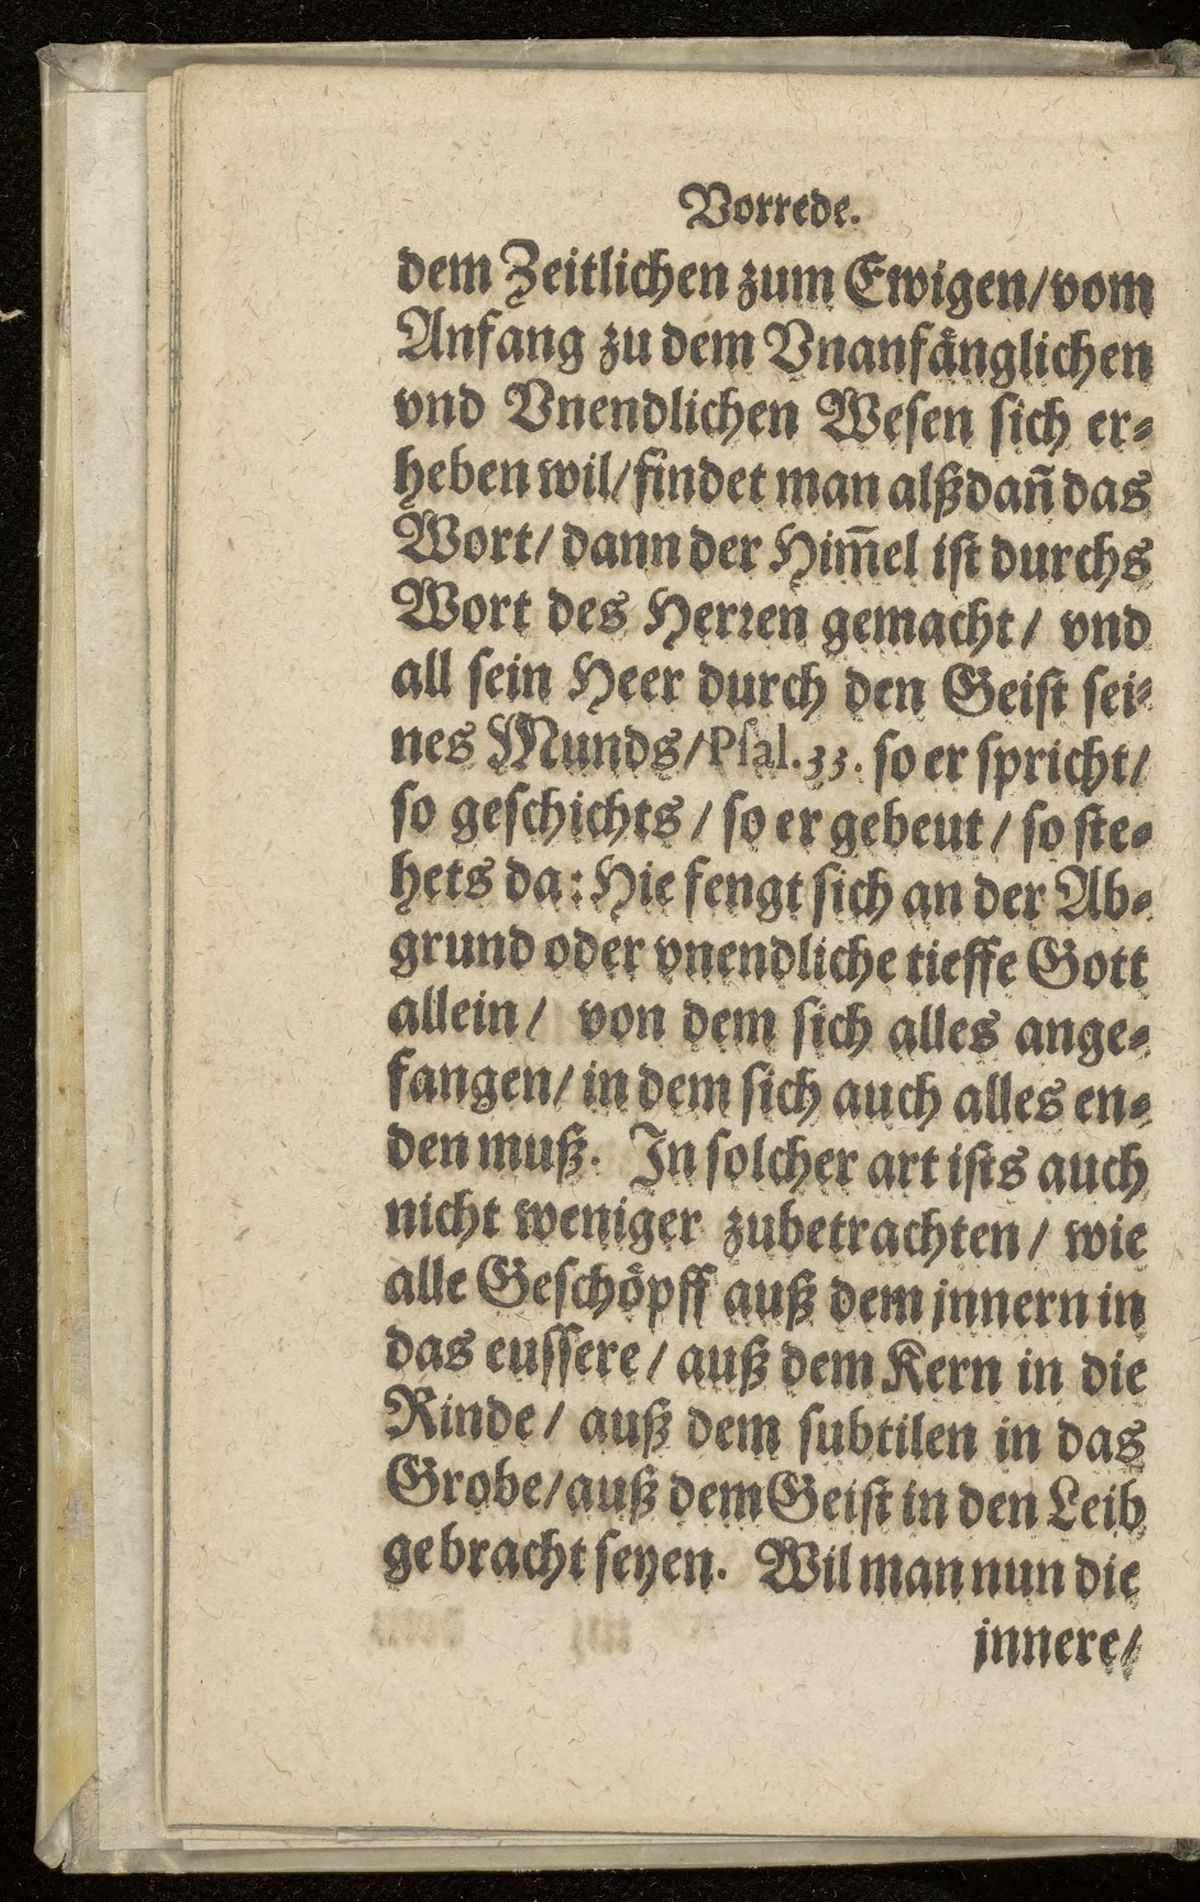 Vorrede.
dem Zeitlichen zum Ewigen/vom
Anfang zu dem Vnanfänglichen
vnd Vnendlichen Wesen sich er-
heben wil/findet man alßdañ das
Wort/ dann der Him̃el ist durchs
Wort des Herren gemacht/ vnd
all sein Heer durch den Geist sei-
nes Munds/Psal.33. so er spricht/
so geschichts / so er gebeut / so ste-
hets da: Hie fengt sich an der Ab-
grund oder vnendliche tieffe Gott
allein/ von dem sich alles ange-
fangen/ in dem sich auch alles en-
den muß. In solcher art ists auch
nicht weniger zubetrachten/ wie
alle Geschöpff auß dem jnnern in
das eussere/ auß dem Kern in die
Rinde/ auß dem subtilen in das
Grobe/auß dem Geist in den Leib
gebracht seyen. Wil man nun die
jnnere/